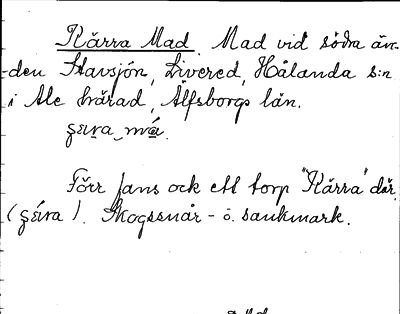 Kärra Mad. Mad vid södra än-
den Stavsjön, Livered, Hålanda s:n
i Ale härad, Älfsborgs län.
Förr fans ock ett torp "Kärra" där.
Skogssnår- o. sankmark.